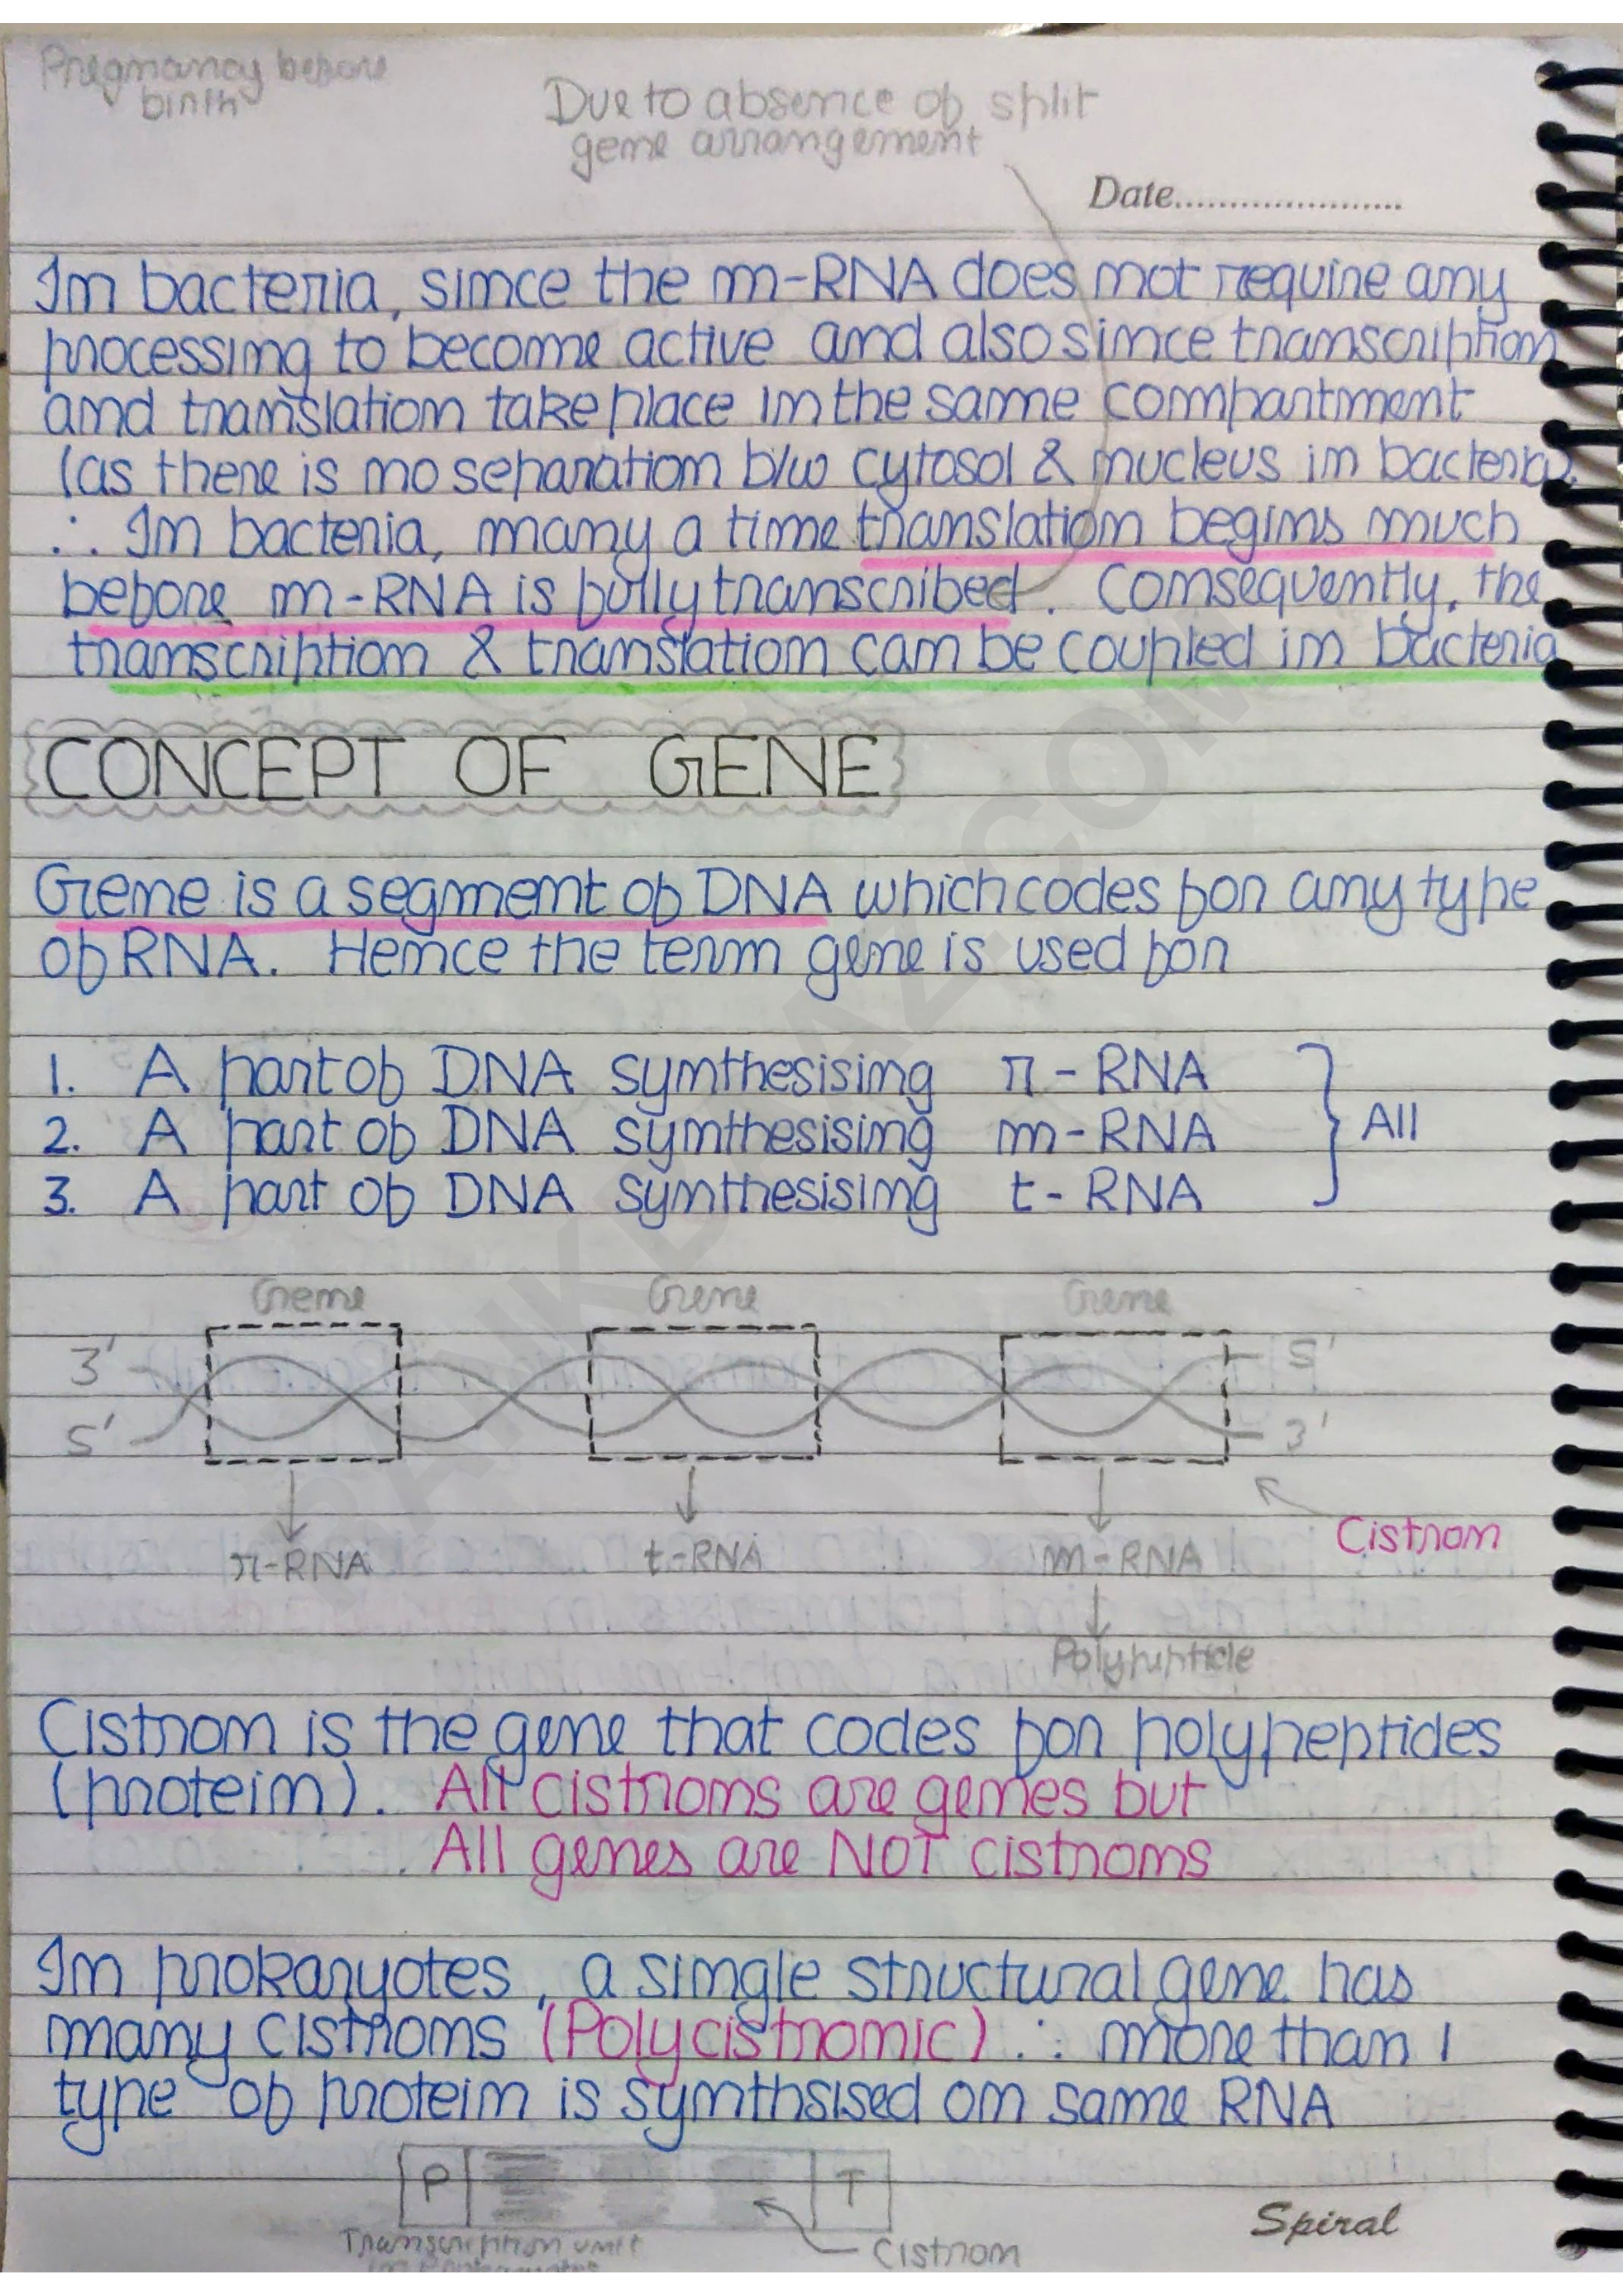 Pregnancy before
birth
Due to absence of split
gene arrangement
Date......................
In bacteria, since the m-RNA does not require any
processing to become active and also since transcription
and translation take place in the same compartment
(as there is no separation b/w cytosol & nucleus in bacteria).
∴ In bacteria, many a time translation begins much
before m-RNA is fully transcribed. Consequently, the
transcription & translation can be coupled in bacteria
CONCEPT OF GENE
Gene is a segment of DNA which codes for any type
of RNA. Hence the term gene is used for
1. A part of DNA synthesising r-RNA
2. A part of DNA synthesising m-RNA } All
3. A part of DNA synthesising t-RNA
Gene Gene Gene
3' 5'
5' 3'
Cistron
r-RNA t-RNA m-RNA
Polypeptide
Cistron is the gene that codes for polypeptides
(protein). All cistrons are genes but
All genes are NOT cistrons
In prokaryotes, a single structural gene has
many cistrons (Polycistronic) ∴ more than 1
type of protein is synthsised on same RNA
P T
Transcription unit
in Prokaryotes
Cistron
Spiral